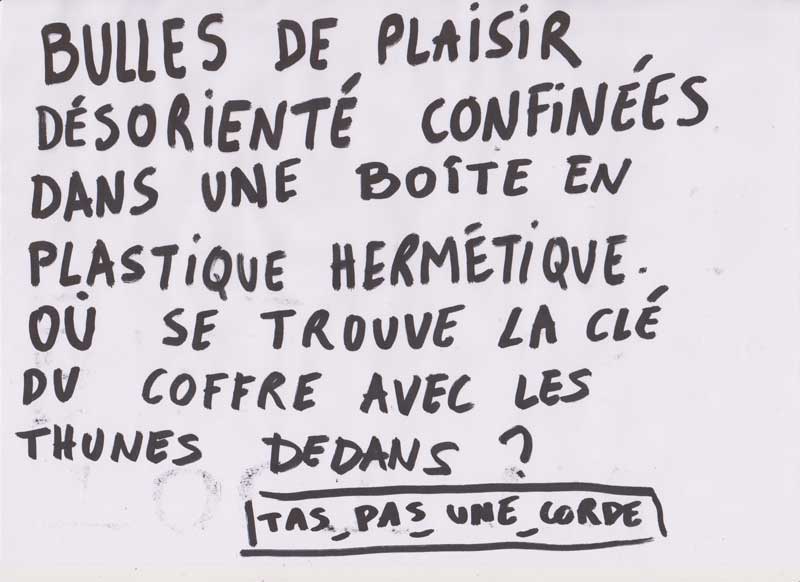 BULLES DE PLAISIR
DÉSORIENTÉ CONFINÉES
DANS UNE BOÎTE EN
PLASTIQUE HERMÉTIQUE.
OÙ SE TROUVE LA CLÉ
DU COFFRE AVEC LES
THUNES DEDANS ?
TAS_PAS_UNE_CORDE